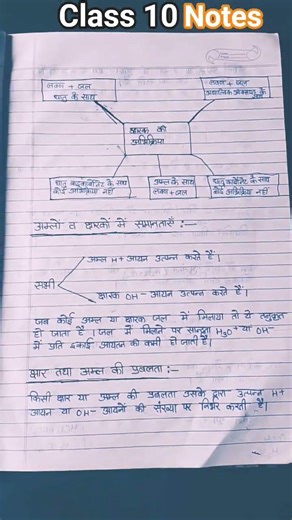 Class 10 Notes
लवण + जल
धातु के साथ
लवण + जल
अधात्विक ऑक्साइड के
क्षारक की
अभिक्रिया
धातु के साथ
कोई अभिक्रिया नहीं
अम्ल के साथ
लवण + जल
धातु कार्बोनेट के साथ
कोई अभिक्रिया नहीं
अम्लों व क्षारकों में समानताएँ :—
अम्ल H+ आयन उत्पन्न करते हैं।
सभी
क्षारक OH- आयन उत्पन्न करते हैं।
जब कोई अम्ल या क्षारक जल में मिलाया तो ये तनुकृत
हो जाता है। जल में मिलाने पर सान्द्रता H3O+ या OH-
में प्रति इकाई आयतन की कमी हो जाती है।
क्षार तथा अम्ल की प्रबलता :—
किसी क्षार या अम्ल की प्रबलता उसके द्वारा उत्पन्न H+
आयन या OH- आयनों की संख्या पर निर्भर करती है।